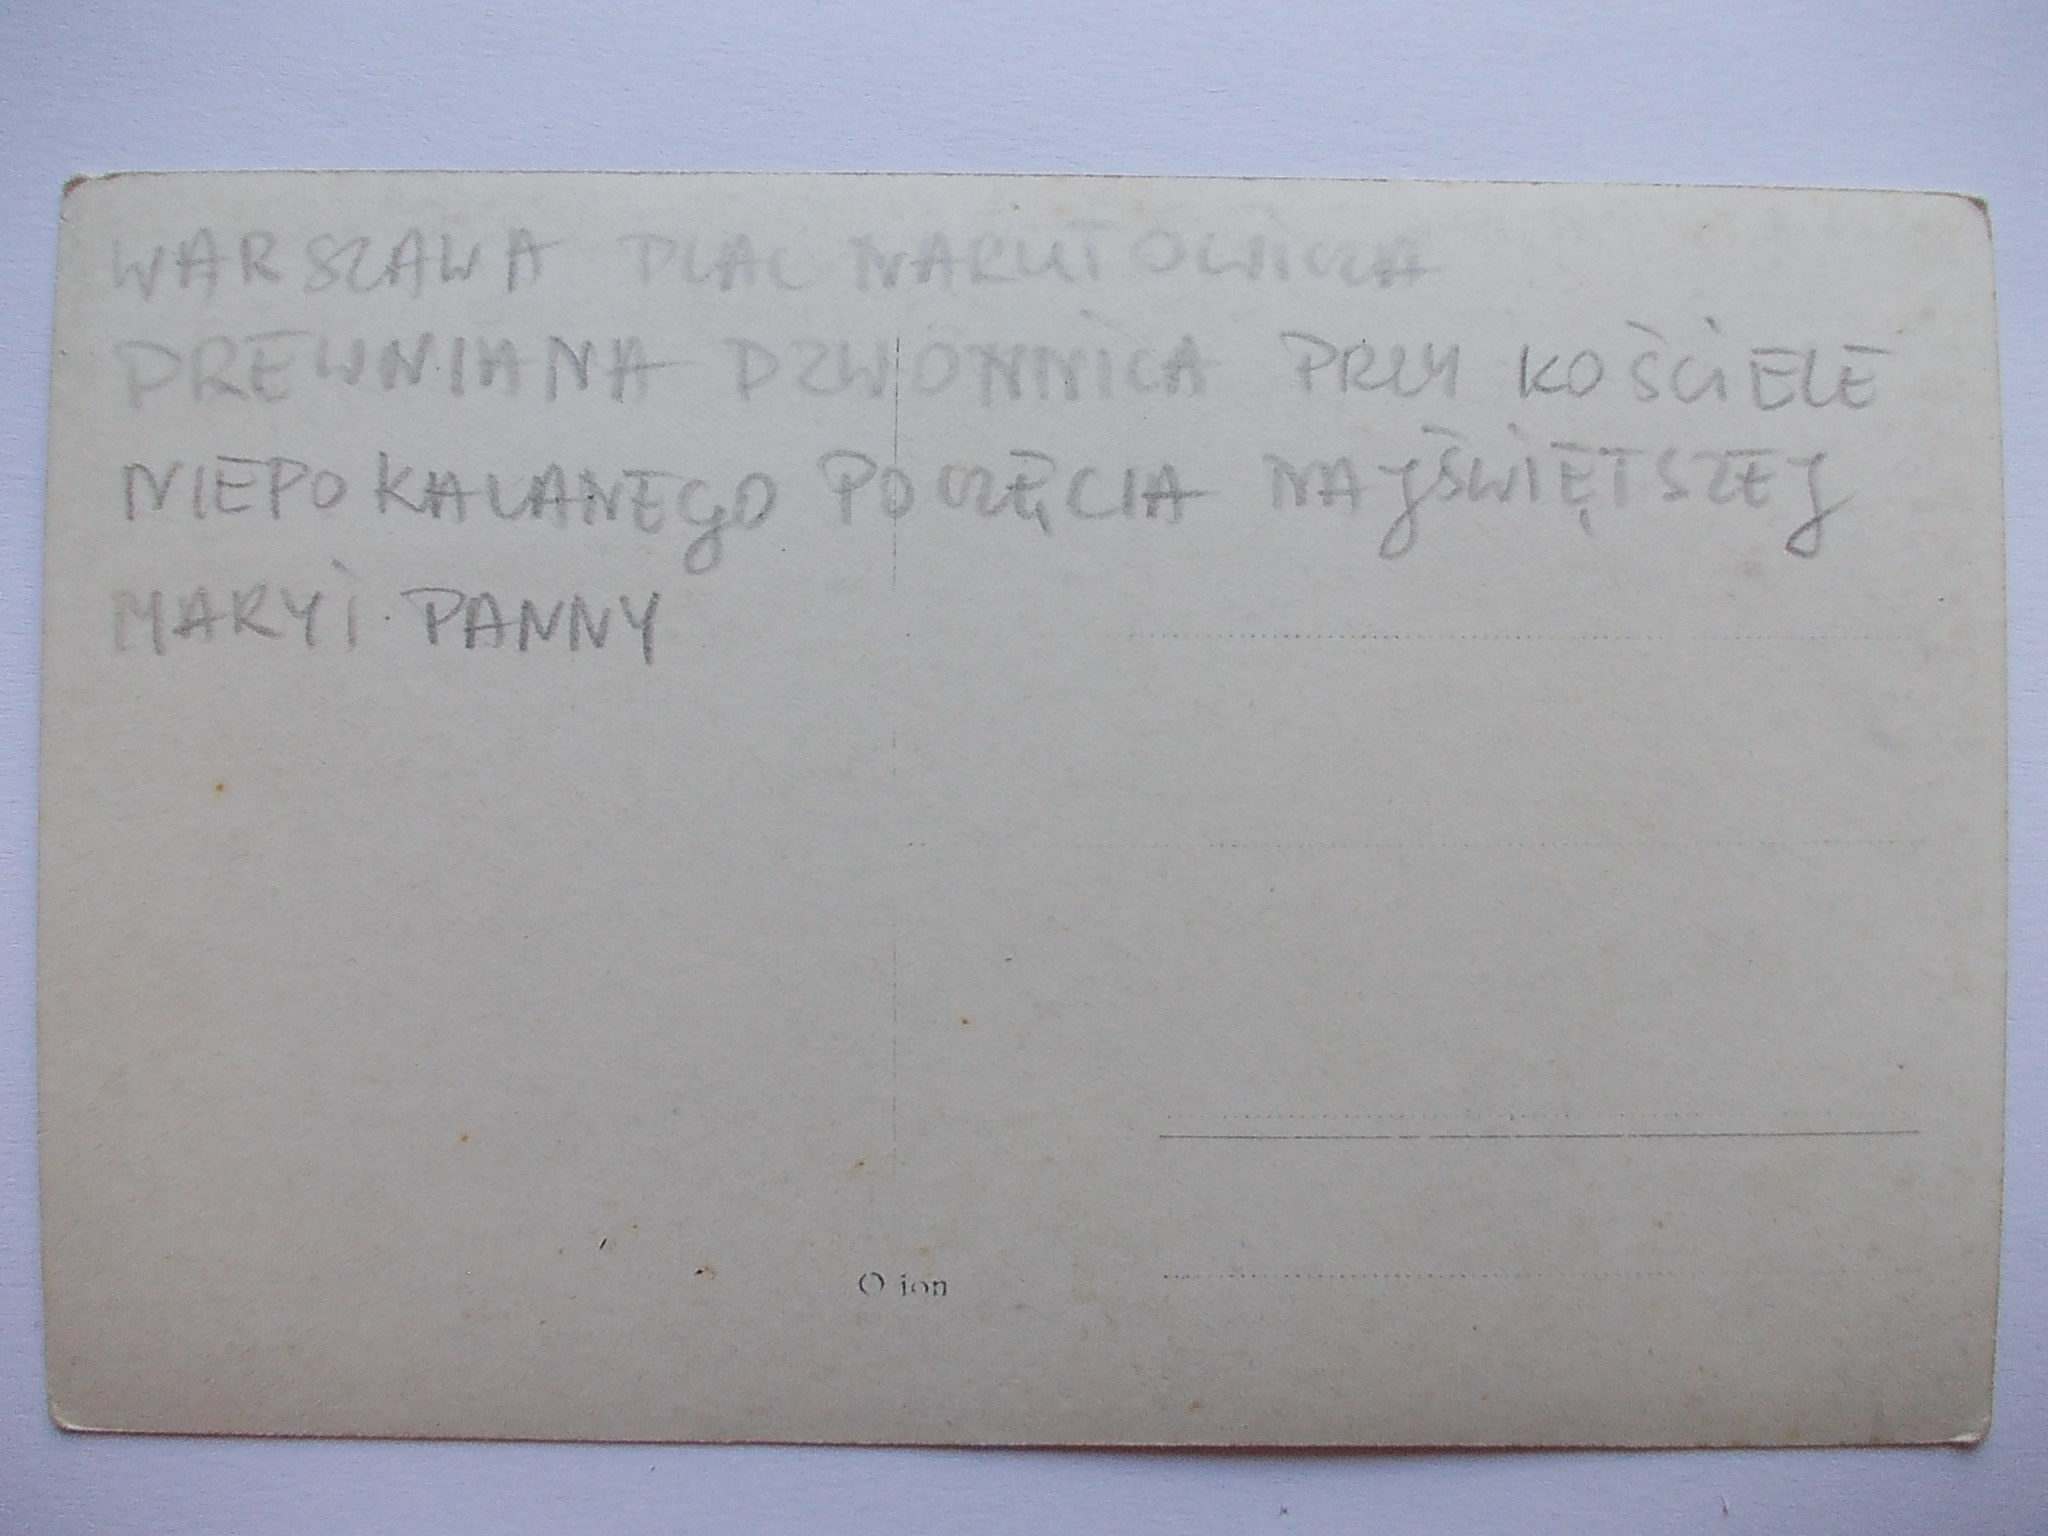 WARSZAWA PLAC NARUTOWICZA
DREWNIANA DZWONNICA PRZY KOŚCIELE
NIEPOKALANEGO POCZĘCIA NAJŚWIĘTSZEJ
MARYI PANNY
O ion